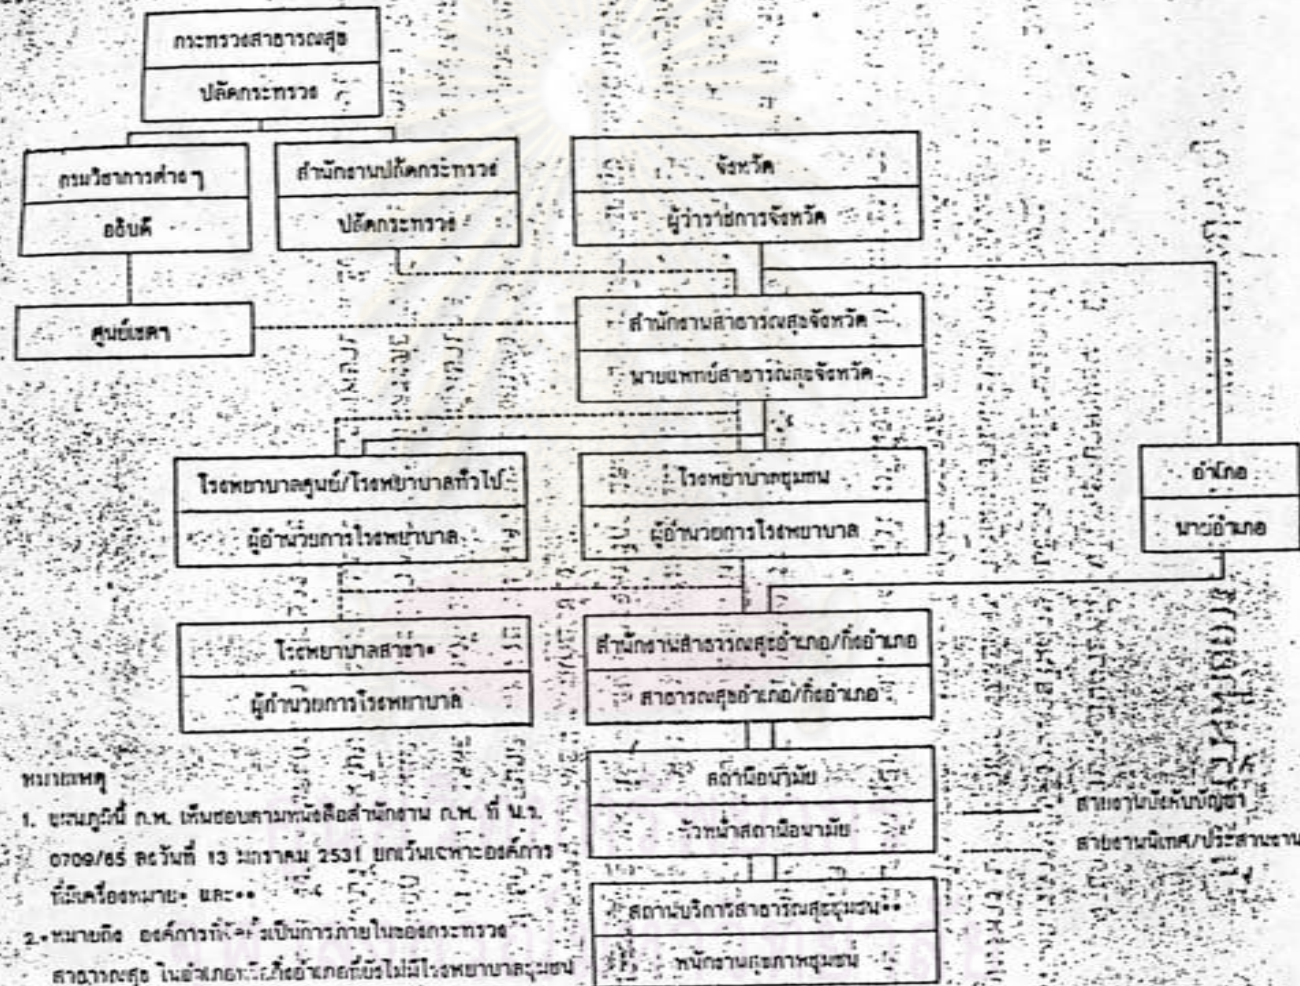 กระทรวงสาธารณสุข
ปลัดกระทรวง
กรมวิชาการต่าง ๆ
อธิบดี
สำนักงานปลัดกระทรวง
ปลัดกระทรวง
จังหวัด
ผู้ว่าราชการจังหวัด
ศูนย์เขตฯ
สำนักงานสาธารณสุขจังหวัด
นายแพทย์สาธารณสุขจังหวัด
โรงพยาบาลศูนย์/โรงพยาบาลทั่วไป
ผู้อำนวยการโรงพยาบาล
โรงพยาบาลชุมชน
ผู้อำนวยการโรงพยาบาล
อำเภอ
นายอำเภอ
โรงพยาบาลสาขา*
ผู้อำนวยการโรงพยาบาล
สำนักงานสาธารณสุขอำเภอ/กิ่งอำเภอ
สาธารณสุขอำเภอ/กิ่งอำเภอ
สถานีอนามัย
หัวหน้าสถานีอนามัย
สถานบริการสาธารณสุขชุมชน**
พนักงานสุขภาพชุมชน
สายงานบังคับบัญชา
สายงานนิเทศ/ประสานงาน
หมายเหตุ
1. แผนภูมินี้ ก.พ. เห็นชอบตามหนังสือสำนักงาน ก.พ. ที่ น.ร.
0709/65 ลงวันที่ 13 มกราคม 2531 ยกเว้นเฉพาะองค์การ
ที่มีเครื่องหมาย* และ**
2.* หมายถึง องค์การที่ เป็นการภายในของกระทรวง
สาธารณสุข ในอำเภอ กิ่งอำเภอที่ยังไม่มีโรงพยาบาลชุมชน